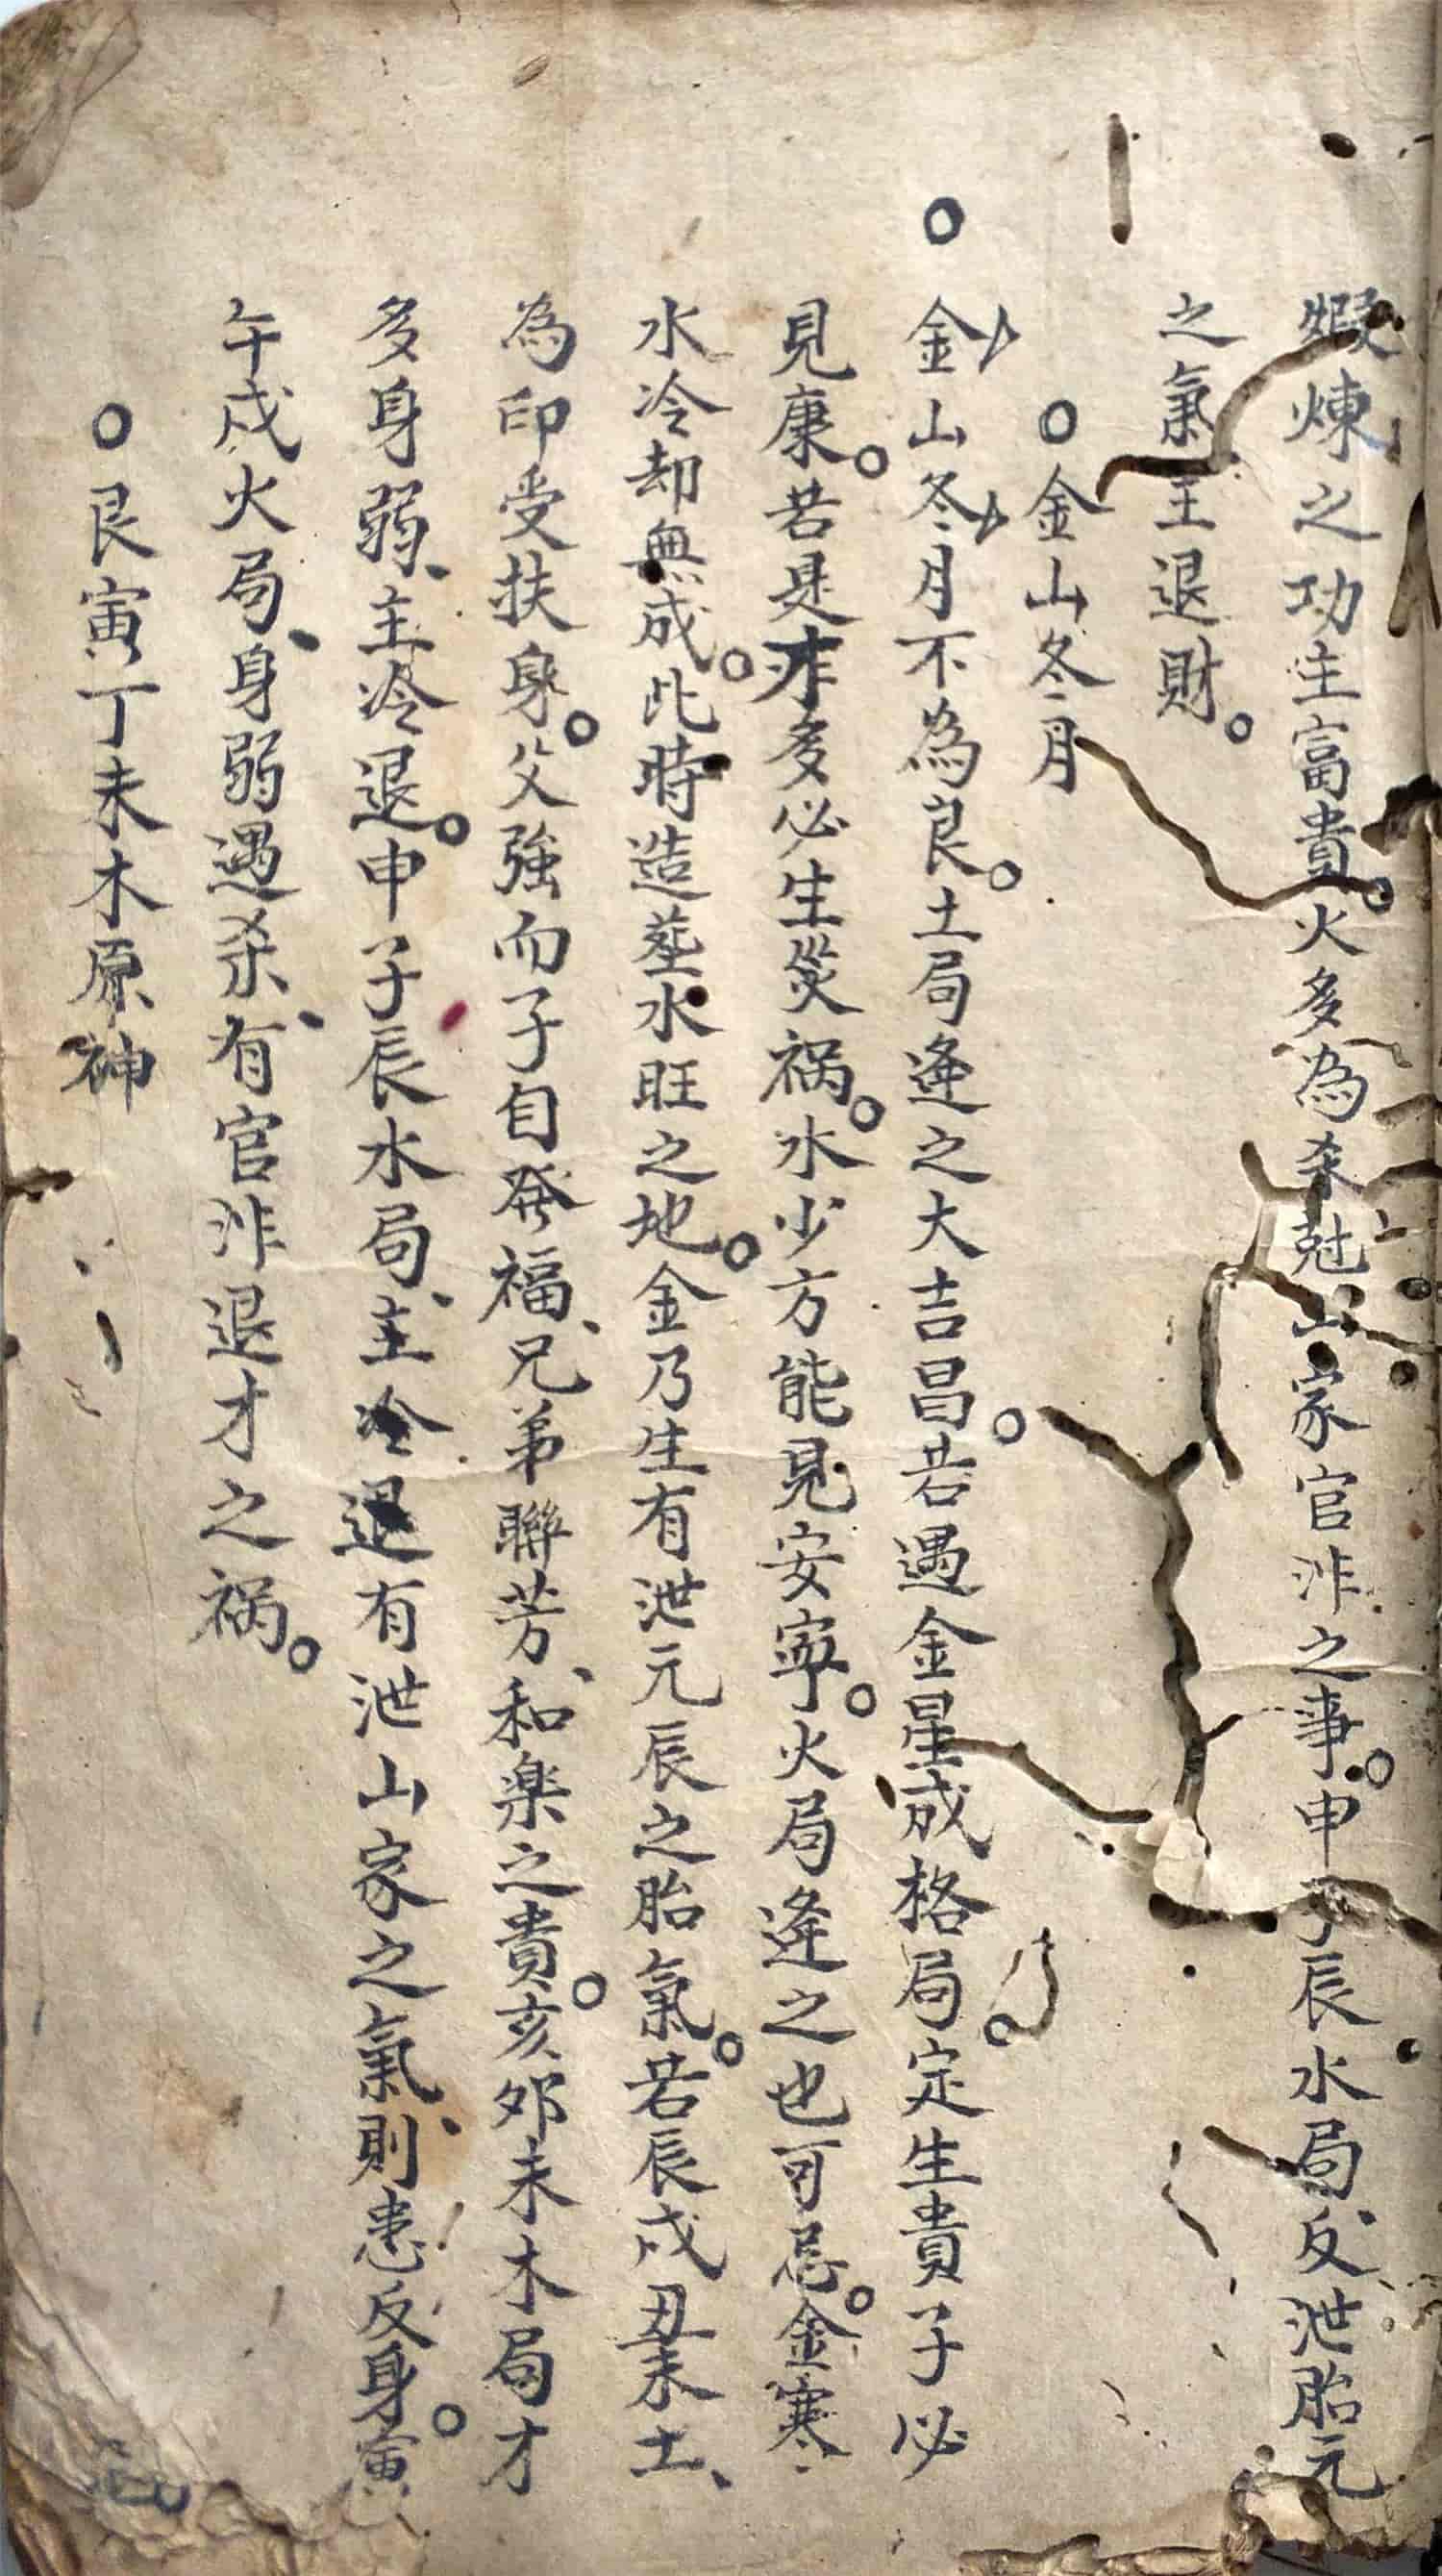 煅煉之功主富貴。火多為杀尅山家官非之事。申子辰水局反泄胎元
之氣主退財。
○金山冬月
○金山冬月不為良。土局逢之大吉昌。若遇金星成格局。定生貴子必
見康。若是木多必生災禍。水少方能見安寧。火局逢之也可忌。金寒
水冷却無成。此時造塟水旺之地。金乃生有泄元辰之胎氣。若辰戌丑未土、
為印受扶身。父強而子自発福、兄弟聯芳、和楽之貴。亥卯未木局才
多身弱、主冷退。申子辰水局、主冷退有泄山家之氣、則患反身。寅
午戌火局、身弱遇杀、有官非退才之禍。
○艮寅丁未木原神